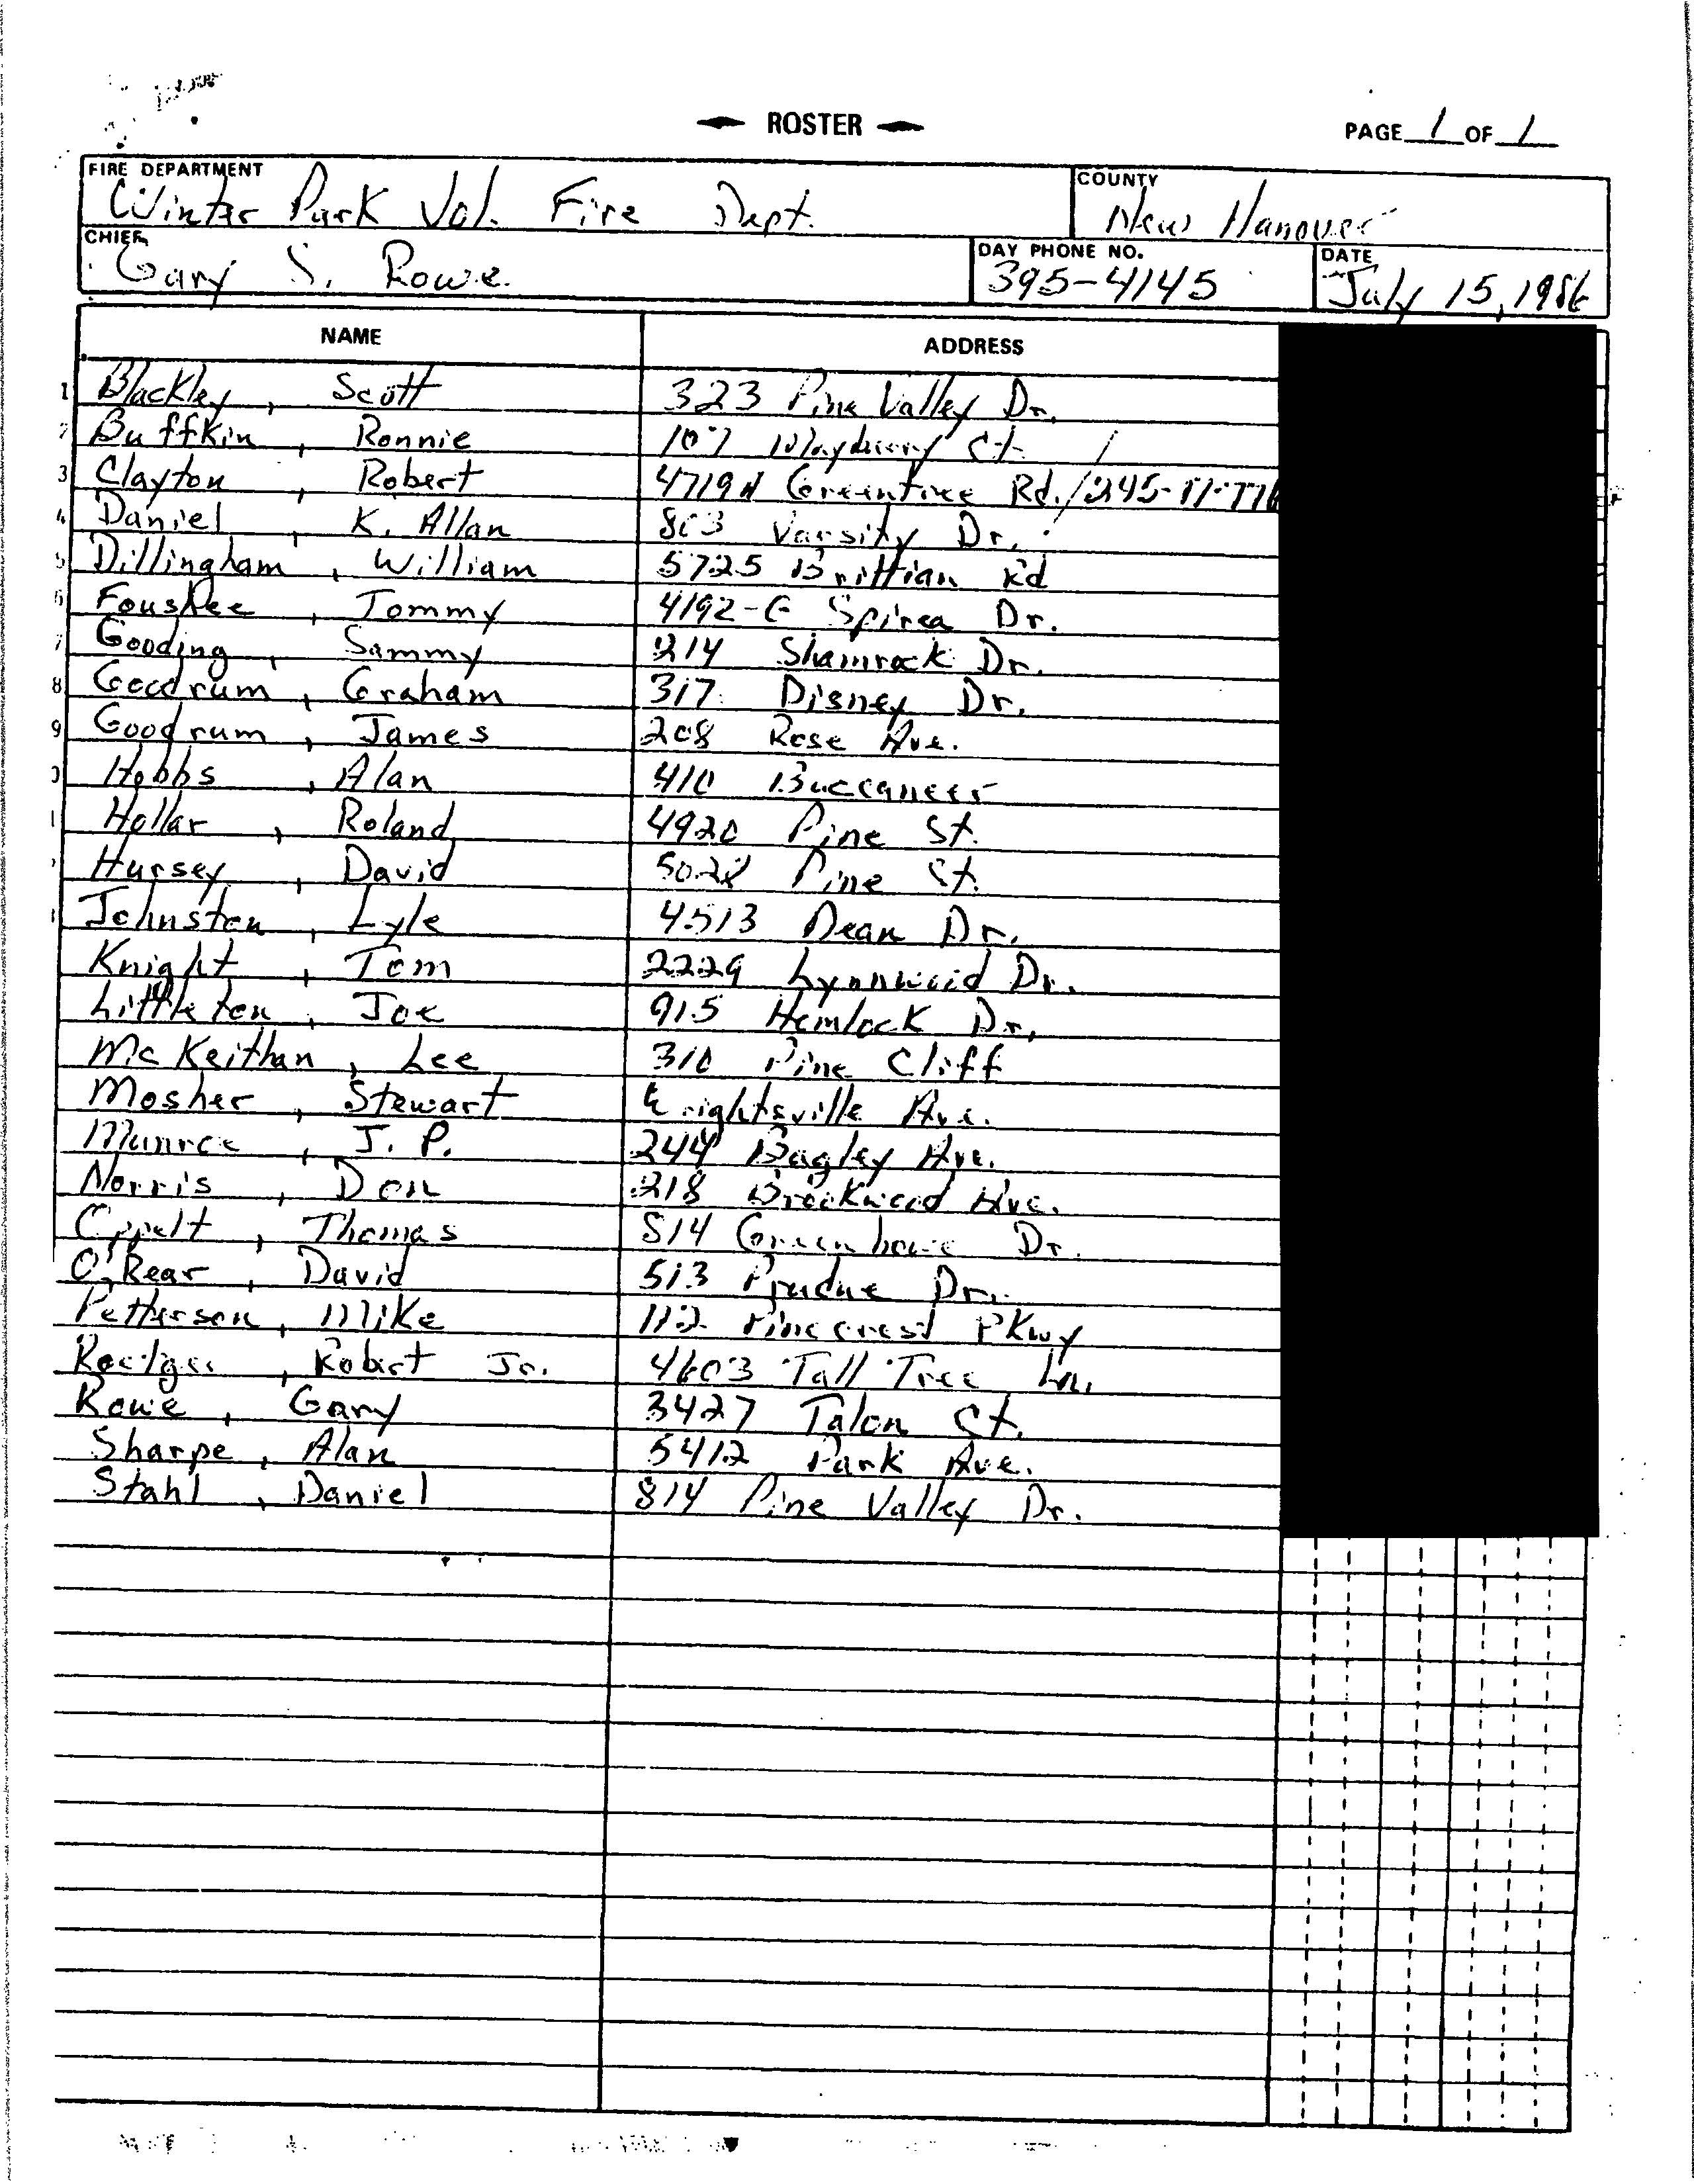 ROSTER
PAGE 1 OF 1
FIRE DEPARTMENT
Winter Park Vol. Fire Dept.
COUNTY
New Hanover
CHIEF
Gary S. Rowe
DAY PHONE NO.
395-4145
DATE
July 15, 1986
NAME ADDRESS
1 Blackley, Scott 323 Pine Valley Dr.
2 Buffkin, Ronnie 107 Ct.
3 Clayton, Robert 4719 Greentree Rd.
4 Daniel, K. Allan 803 Varsity Dr.
5 Dillingham, William 5725 Brittian Rd
6 Foushee, Tommy 4192-G Spirea Dr.
7 Gooding, Sammy 214 Shamrock Dr.
8 Goodrum, Graham 317 Disney Dr.
9 Goodrum, James 208 Rose Ave.
Hobbs, Alan 410 Buccaneer
Hollar, Roland 4920 Pine St.
Hursey, David 5028 Pine St.
Johnston, Lyle 4513 Dean Dr.
Knight, Tom 2229 Lynnwood Dr.
Littleton, Joe 915 Hemlock Dr.
McKeithan, Lee 310 Pine Cliff
Mosher, Stewart Wrightsville Ave.
Munroe, J. P. 244 Bagley Ave.
Norris, Don 218 Brookwood Ave.
Oppelt, Thomas 514 Dr.
O'Rear, David 513 Prudue Dr.
Petterson, Mike 112 Pinecrest PKwy
Robert Jr. 4603 Tall Tree Ln.
Rowe, Gary 3427 Talon Ct.
Sharpe, Alan 5412 Park Ave.
Stahl, Daniel 814 Pine Valley Dr.